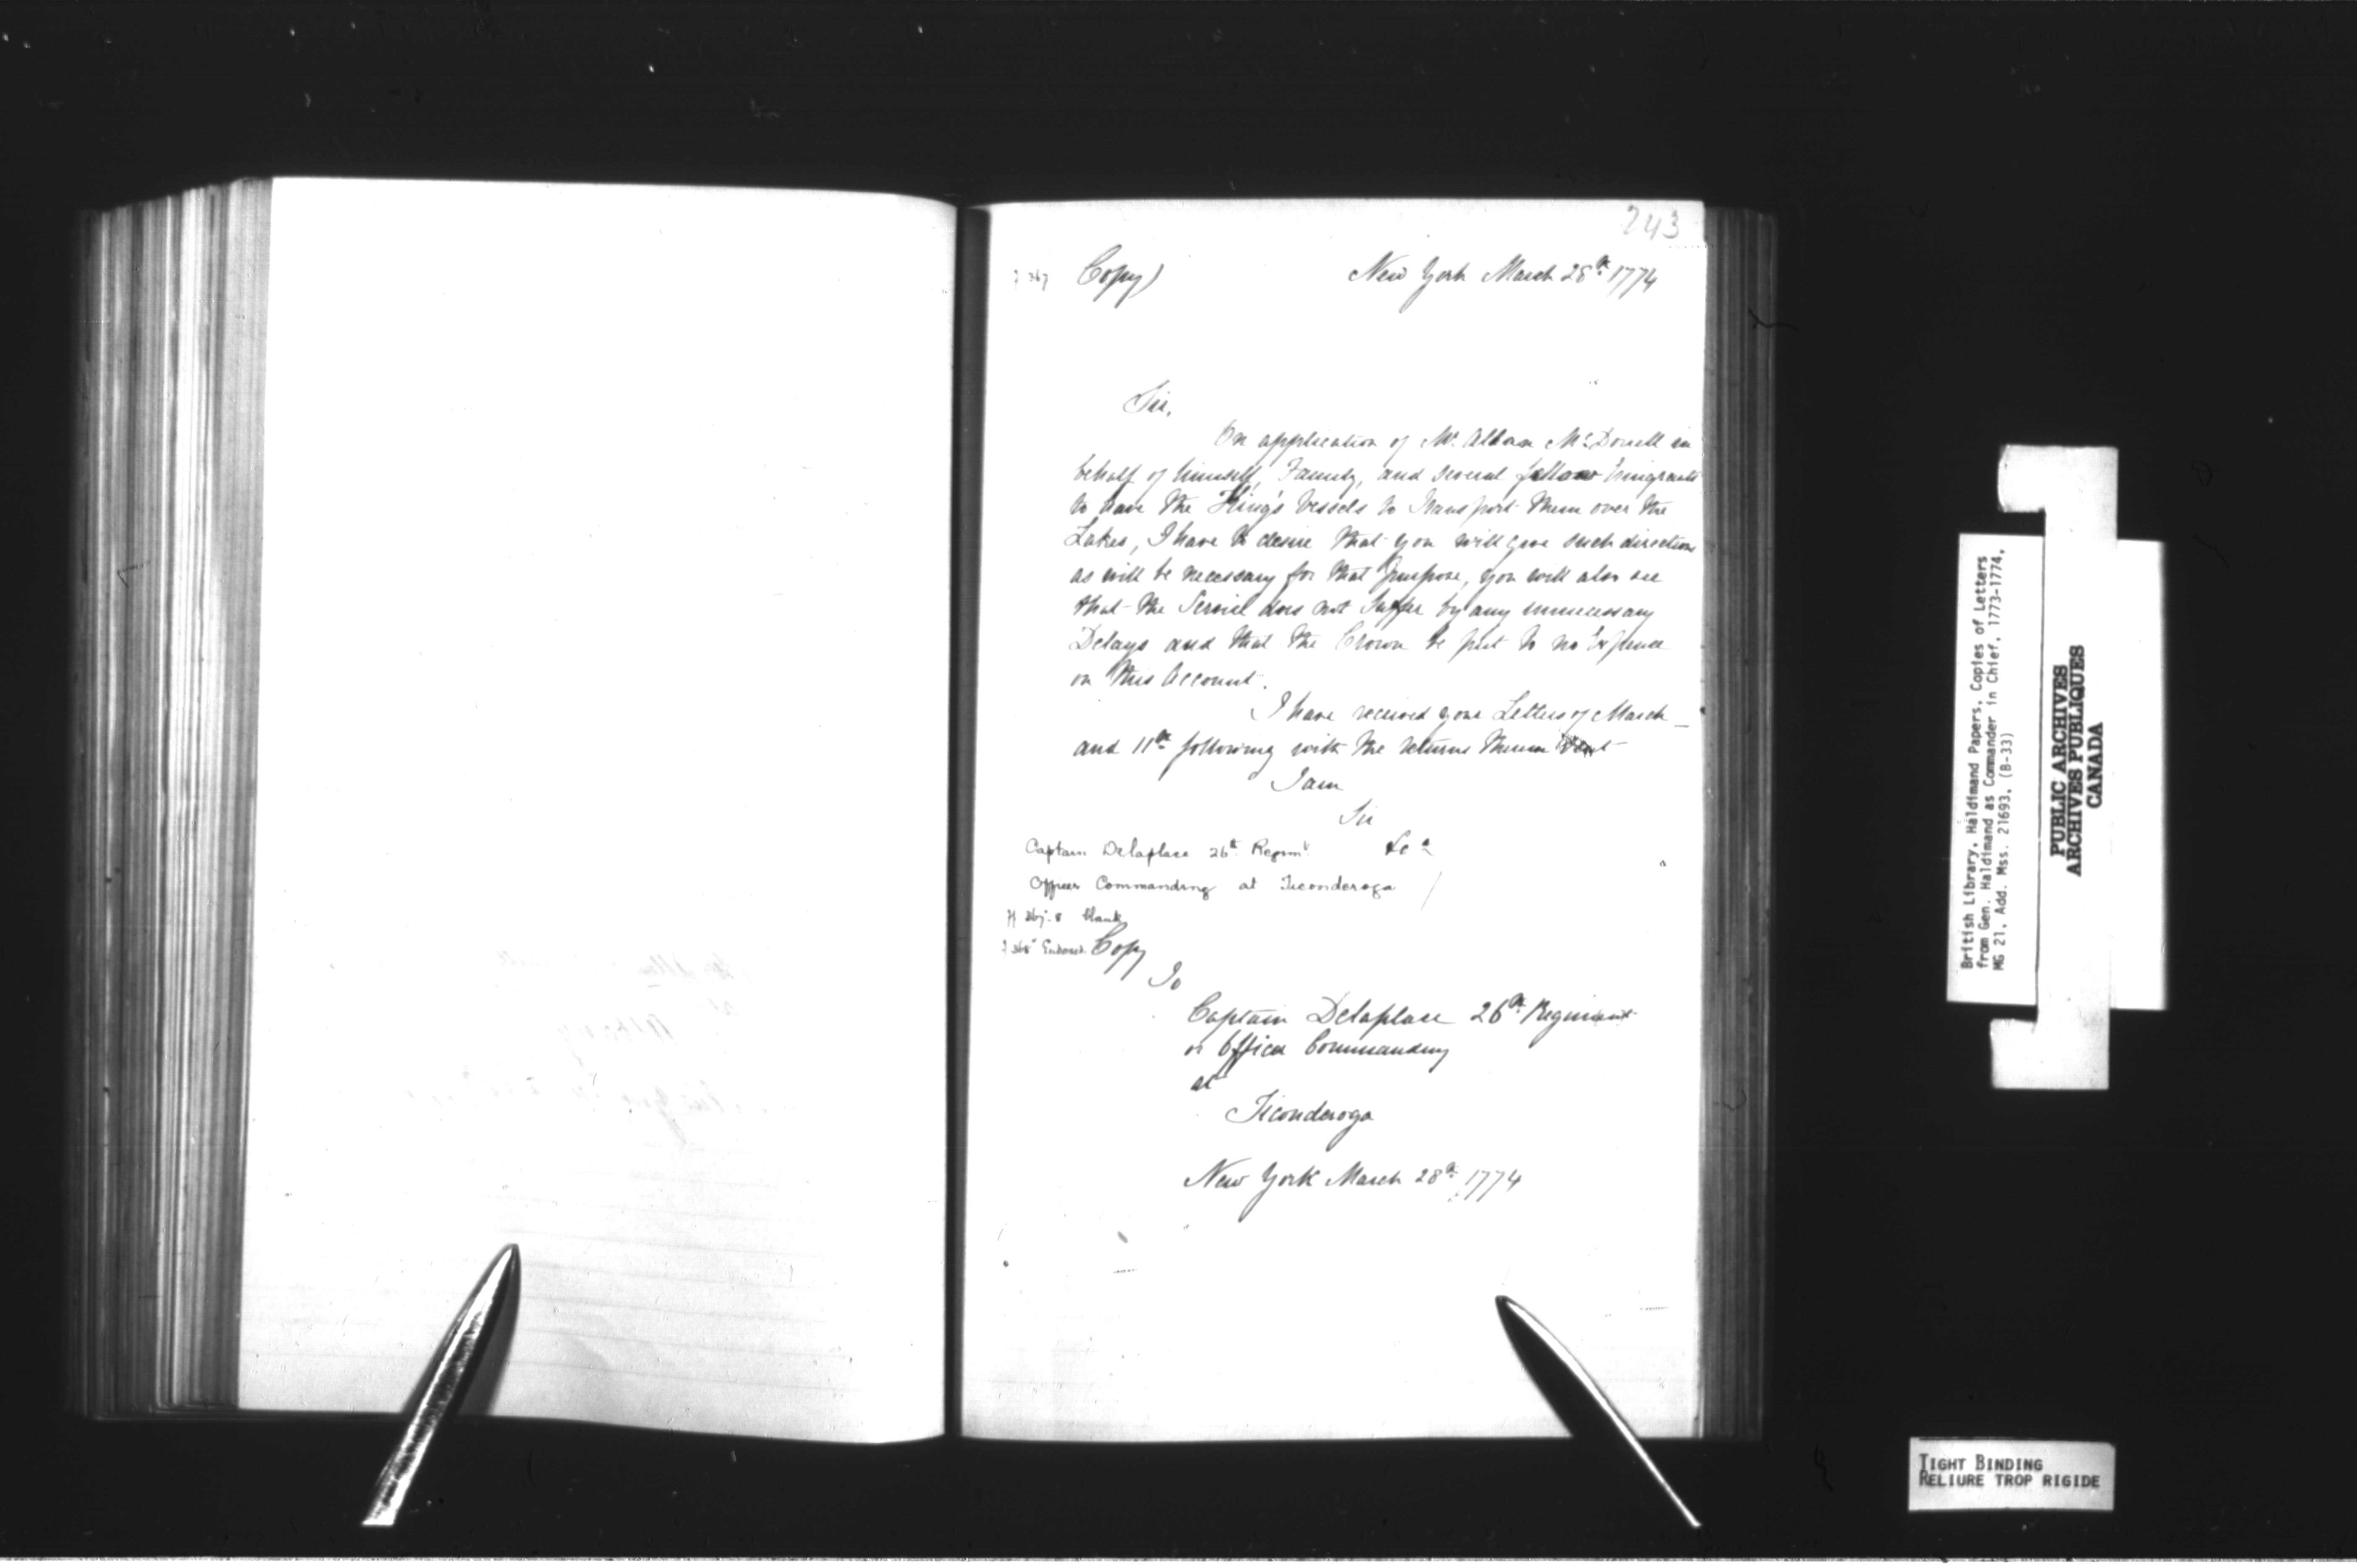 243
f 367 Copy) New York March 28th 1774
Sir,
On application of Mr. Alban McDonell in
behalf of himself, Family, and several fellow Emigrants
to have the King's Vessels to Transport them over the
Lakes, I have to desire that you will give such directions
as will be necessary for that purpose, you will also see
that the Service does not Suffer by any unnecessary
Delays and that the Crown be put to no Expence
on this Account.
I have received your Letters of March —
and 11th following with the returns therein
I am
Sir
&ca
Captain Delaplace 26th Regimt
Officer Commanding at Ticonderoga
ff 367-8 blank
f 368v Endorsed. Copy
To
Captain Delaplace 26th Regiment
or Officer Commanding
at
Ticonderoga
New York March 28th 1774
British Library, Haldimand Papers, Copies of Letters
from Gen. Haldimand as Commander in Chief, 1773-1774,
MG 21, Add. Mss. 21693, (B-33)
PUBLIC ARCHIVES
ARCHIVES PUBLIQUES
CANADA
TIGHT BINDING
RELIURE TROP RIGIDE